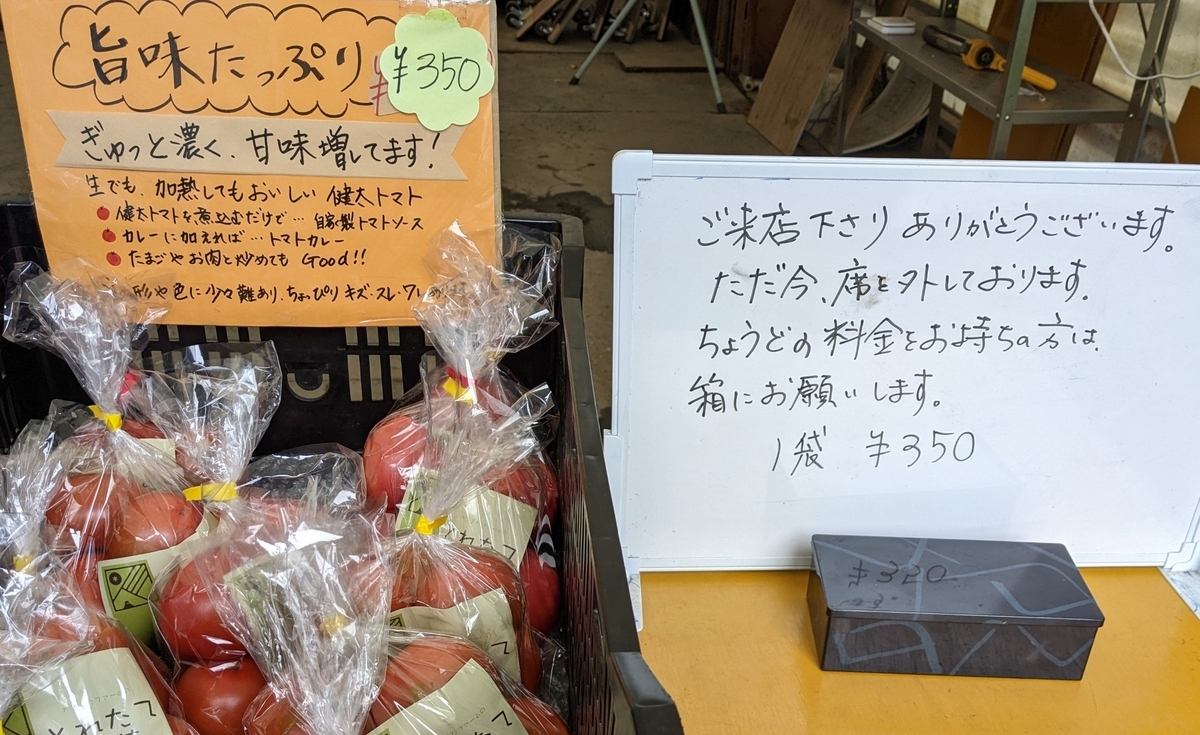 旨味たっぷり
¥350
ぎゅっと濃く、甘味増してます!
生でも、加熱してもおいしい 健太トマト
健太トマトを煮込むだけで… 自家製トマトソース
カレーに加えれば… トマトカレー
たまごやお肉と炒めても Good!!
形や色に少々難あり、ちょっぴり キズ・スレ・ワレ
ご来店下さり ありがとうございます。
ただ今、席を外しております。
ちょうどの料金をお持ちの方は、
箱にお願いします。
1袋 ¥350
¥320
とれたて